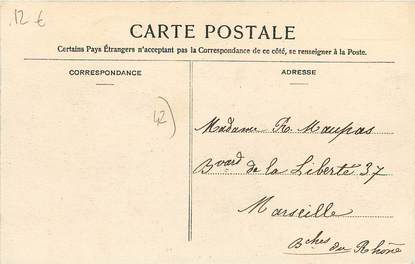 12 €
CARTE POSTALE
Certains Pays Étrangers n'acceptant pas la Correspondance de ce côté, se renseigner à la Poste.
CORRESPONDANCE
ADRESSE
42
Madame R. Maupas
Bvard de la Liberté 37
Marseille
Bches du Rhône